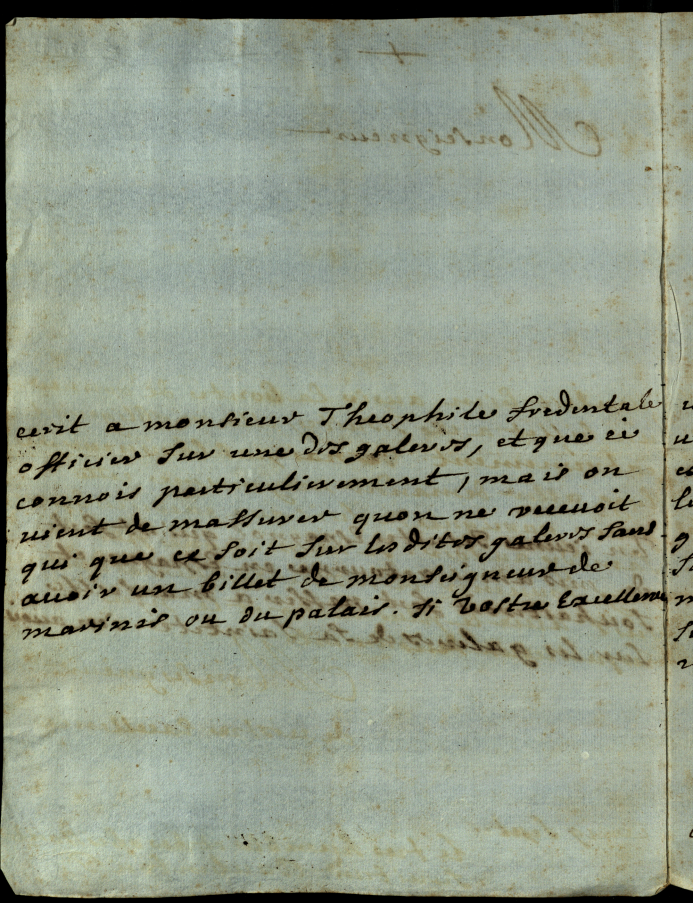 ecrit a monsieur Theophile fredentale
officier sur une des galeres, et que ie
connois particulierement, mais on
vient de massurer quon ne recevoit
qui que ce soit sur lesdites galeres sans
avoir un billet de monseigneur de
marinis ou du palais. si vostre Excellence